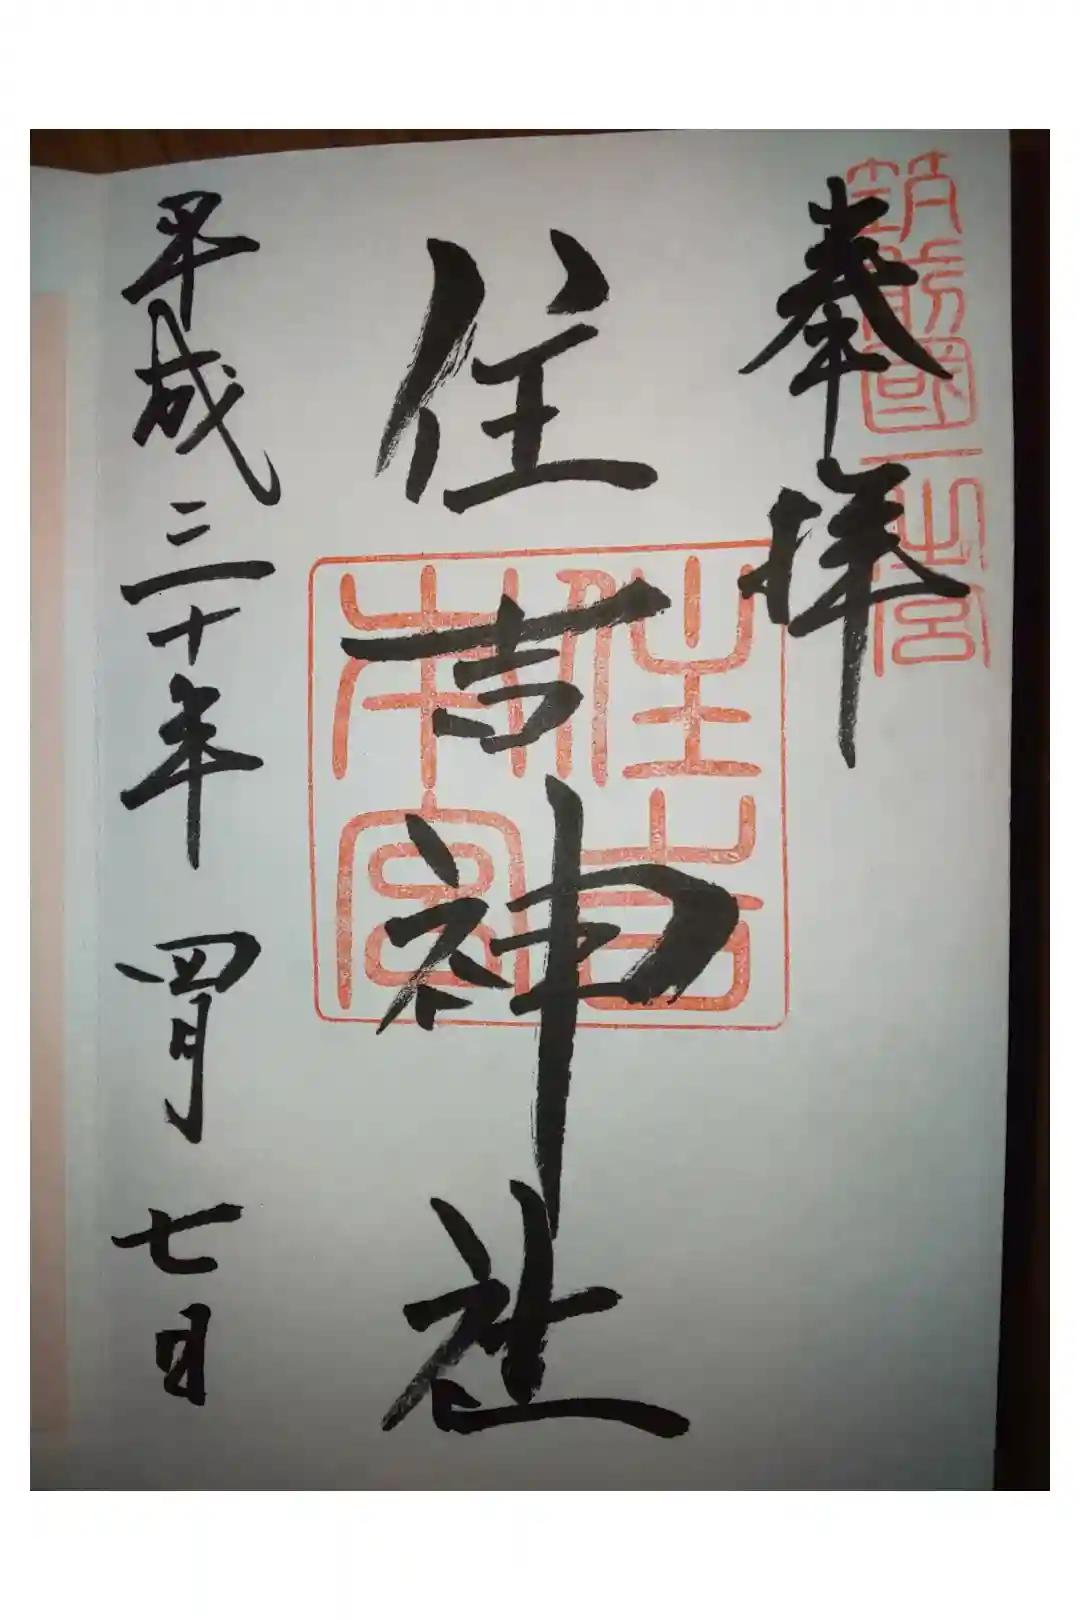 筑前國一之宮
奉拝
住吉神社
住吉本宮
平成三十年四月七日